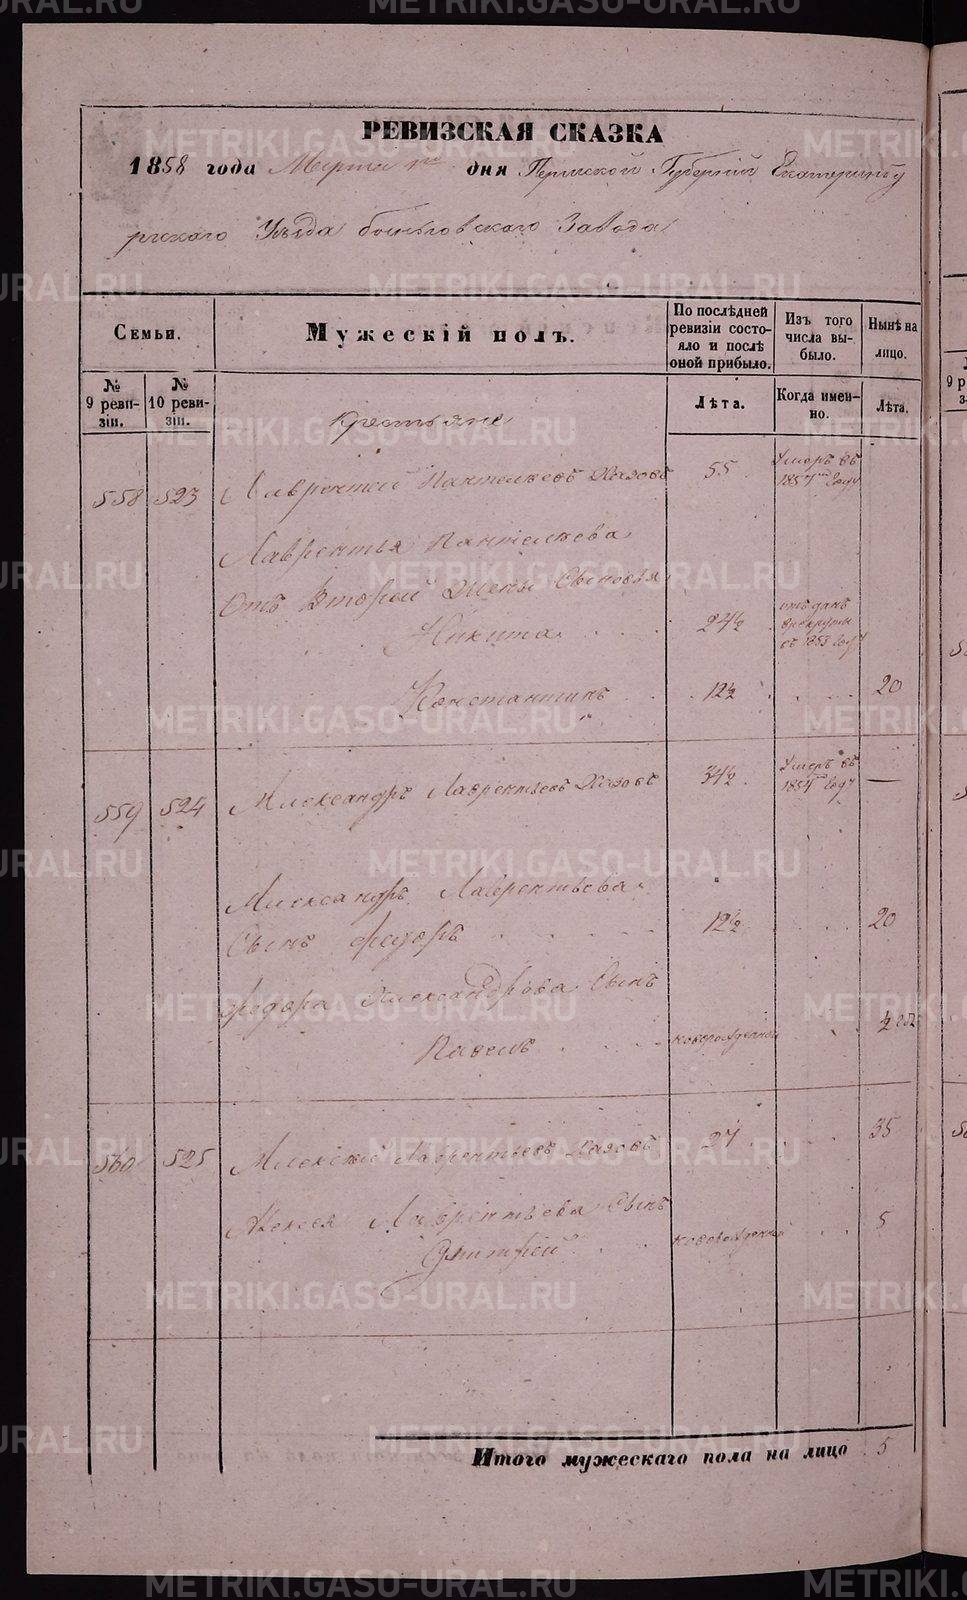 РЕВИЗСКАЯ СКАЗКА
1858 года Марта 1го дня Пермской Губернiи Екатеринбу
ргскаго Уѣзда боньговскаго Завода
Семьи.
Мужескій полъ.
По послѣдней ревизіи состояло и послѣ оной прибыло.
Изъ того числа выбыло.
Нынѣ на лицо.
№ 9 ревизіи.
№ 10 ревизіи.
Лѣта.
Когда именно.
Лѣта.
Крестьяне
558 523 Лаврентей Пантелѣевъ 55 Умеръ въ 1857мъ году
Лаврентья Пантелѣева
Отъ Второй жены Сыновья
Никита 24½ отъданъ врекруты въ 1853 году
Константинъ 12½ 20
559 524 Александръ Лаврентьевъ 34½ Умеръ въ 1854 году —
Александръ Лаврентьева
Сынъ Федоръ 12½ 20
Федора Александрова Сынъ
Павелъ новорожденной ½ года
560 525 Алексѣй Лаврентьевъ 27 35
Алексея Лаврентьева Сынъ
Дмитрей новорожденной 5
Итого мужескаго пола на лицо 5
METRIKI.GASO-URAL.RU